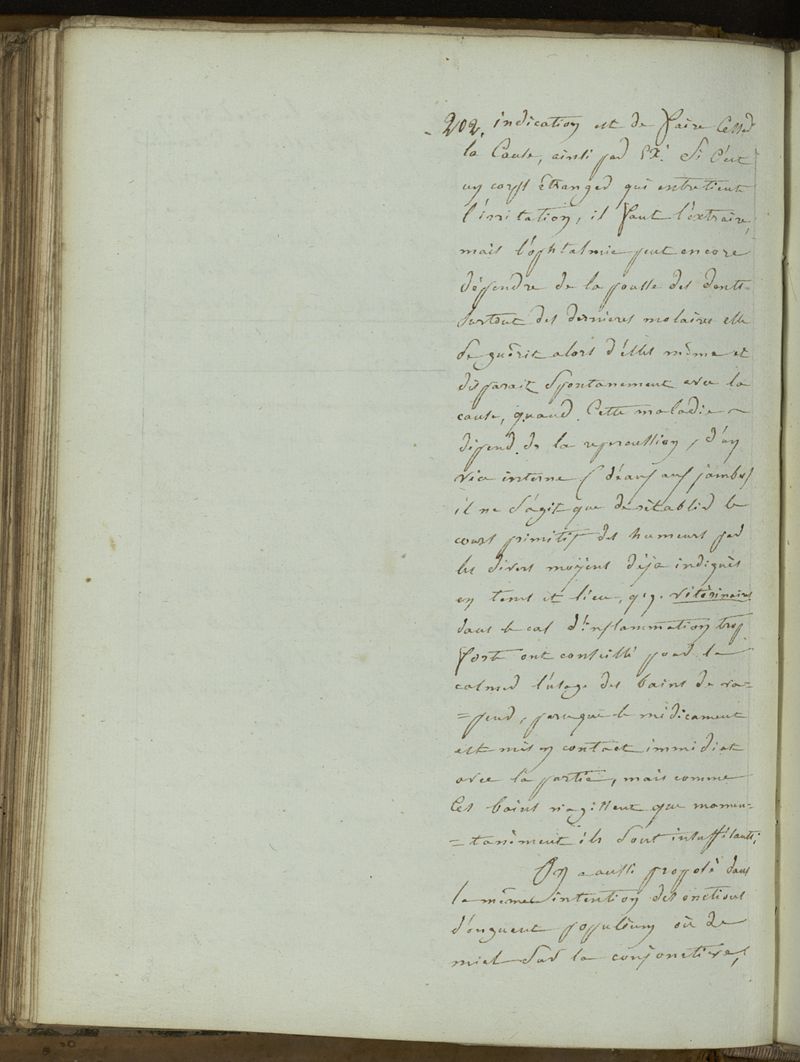 202. indication est de faire Cesser
la Cause, ainsi par Ex: Si C'est
un corps Etranger qui entretient
l'irritation, il faut l'extraire,
mais l'ophtalmie peut encore
dépendre de la pousse des dents
surtout des dernieres molaires elle
se guérit alors d'elles même et
disparait spontanement avec la
cause, quand Cette maladie
dépend de la repercussion, d'un
vice interne ( d'eaux aux jambes)
il ne s'agit que de rétablir le
cours primitif des humeurs par
les divers moÿens déja indiqués
en tems et lieu, q.q. vétérinaires
dans le cas d'inflammation trop
forte ont conseillé pour la
calmer l'usage des bains de va-
=peur, parceque le médicament
est mis en contact immédiat
avec la partie, mais comme
Ces bains n'agissent que momen-
=tanément ils sont insuffisants;
On a aussi proposé dans
la même intention des onctions
d'onguent populéum ou de
miel sur la conjonctive,